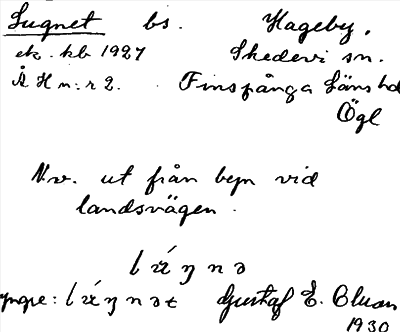 Lugnet bs. Hageby,
ek. kb 1927 Skedevi sn.
Å H n:r 2. Finspånga Länshd
Ögl
N.v. ut från byn vid
landsvägen.
yngre: Gustaf E.
1930